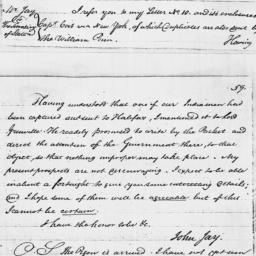 Mr. Jay
to
Secretary
of State
I refer you to my Letter No. 10. and its enclosures
Capt. via New York, of which Duplicates are also sent by
the William Penn.
Having
59.
Having understood that one of our Indiamen had
been captured and sent to Halifax, I mentioned it to Lord
Grenville. He readily promised to write by the Packet and
direct the attention of the Government there, to that
object, so that nothing improper may take place. My
present prospects are not discouraging. I expect to be able
in about a fortnight to give you some interesting details;
and I hope some of them will be agreeable but of this
I cannot be certain.
I have the honor to be &c.
John Jay.
P. S. The Pigou is arrived. I have not yet seen